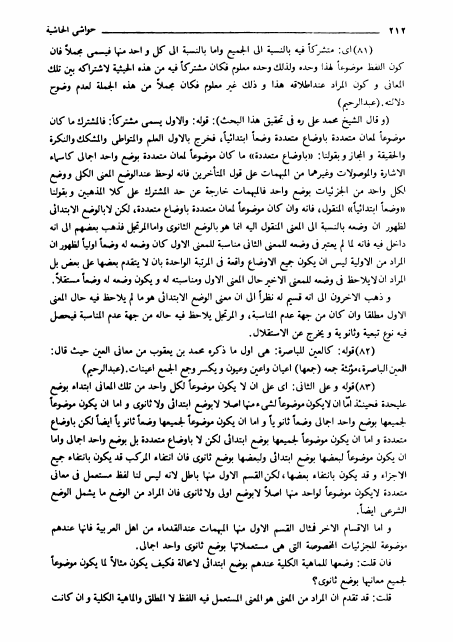 ٢١٢ حواشي الحاشية
(٨١) اى: متشركاً فيه بالنسبة الى الجميع واما بالنسبة الى كل و احد منها فيسمى مجملاً فان
كون اللفظ موضوعاً لهذا وحده ولذلك وحده معلوم فكان مشتركا فيه من هذه الحيثية لاشتراكه بين تلك
المعانى و كون المراد عنداطلاقه هذا و ذلك غير معلوم فكان مجملاً من هذه الجملة لعدم وضوح
دلالته. (عبدالرحيم)
(و قال الشيخ محمد على ره فى تحقيق هذا البحث): قوله: والاول يسمى مشتركاً: فالمشترك ما كان
موضوعاً لمعان متعددة باوضاع متعددة وضعاً ابتدائياً، فخرج بالاول العلم والمتواطى والمشكك والنكرة
والحقيقة و المجاز و بقولنا: «باوضاع متعددة» ما كان موضوعاً لمعان متعددة بوضع واحد اجمالى كاسماء
الاشارة والموصولات وغيرهما من المبهمات على قول المتأخرين فانه لوحظ عندالوضع المعنى الكلى و وضع
لكل واحد من الجزئيات بوضع واحد فالمبهمات خارجة عن حد المشترك على كلا المذهبين و بقولنا
«وضعاً ابتدائياً» المنقول، فانه وان كان موضوعاً لمعان متعددة باوضاع متعددة، لكن لابالوضع الابتدائى
لظهور ان وضعه بالنسبة الى المعنى المنقول اليه انما هو بالوضع الثانوى واما المرتجل فذهب بعضهم الى انه
داخل فيه فانه لما لم يعتبر فى وضعه للمعنى الثانى مناسبة للمعنى الاول كان وضعه له وضعاً اولياً لظهور ان
المراد من الاولية ليس ان يكون جميع الاوضاع واقعة فى المرتبة الواحدة بان لا يتقدم بعضها على بعض بل
المراد ان لايلاحظ فى وضعه للمعنى الاخير حال المعنى الاول ومناسبته له و يكون وضعه له وضعاً مستقلاً.
و ذهب الاخرون الى انه قسيم له نظراً الى ان معنى الوضع الابتدائى هو ما لم يلاحظ فيه حال المعنى
الاول مطلقا وان كان من جهة عدم المناسبة، و المرتجل يلاحظ فيه حاله من جهة عدم المناسبة فيحصل
فيه نوع تبعية وثانوية و يخرج عن الاستقلال.
(٨٢) قوله: كالعين للباصرة: هى اول ما ذكره محمد بن يعقوب من معانى العين حيث قال:
العين الباصرة، مؤنثة جمعه (جمعها) اعيان واعين وعيون و يكسر وجع الجمع اعينات. (عبدالرحيم)
(٨٣) قوله: و على الثانى: اى على ان لا يكون موضوعاً لكل واحد من تلك المعانى ابتداء بوضع
عليحدة فحينئذ امّا ان لايكون موضوعاً لشىء منها اصلا لابوضع ابتدائى ولا ثانوى و اما ان يكون موضوعاً
لجميعها بوضع واحد اجمالى وضعاً ثانوياً و اما ان يكون موضوعاً لجميعها وضعاً ثانوياً ايضاً لكن باوضاع
متعددة و اما ان يكون موضوعاً لجميعها بوضع ابتدائى لكن لا باوضاع متعددة بل بوضع واحد اجمالى واما
ان يكون موضوعاً لبعضها بوضع ابتدائى ولبعضها بوضع ثانوى فان انتفاء المركب قد يكون بانتفاء جميع
الاجزاء و قد يكون بانتفاء بعضها، لكن القسم الاول منها باطل لانه ليس لنا لفظ مستعمل فى معانى
متعددة لايكون موضوعاً لواحد منها اصلاً لابوضع اولى ولا ثانوى فان المراد من الوضع ما يشمل الوضع
الشرعى ايضاً.
و اما الاقسام الاخر فمثال القسم الاول منها المبهمات عندالقدماء من اهل العربية فانها عندهم
موضوعة للجزئيات المخصوصة التى هى مستعملاتها بوضع ثانوى واحد اجمالى.
فان قلت: وضعها للماهية الكلية عندهم بوضع ابتدائى لامحالة فكيف يكون مثالاً لما يكون موضوعاً
لجميع معانيها بوضع ثانوى؟
قلت: قد تقدم ان المراد من المعنى هو المعنى المستعمل فيه اللفظ لا المطلق والماهية الكلية و ان كانت